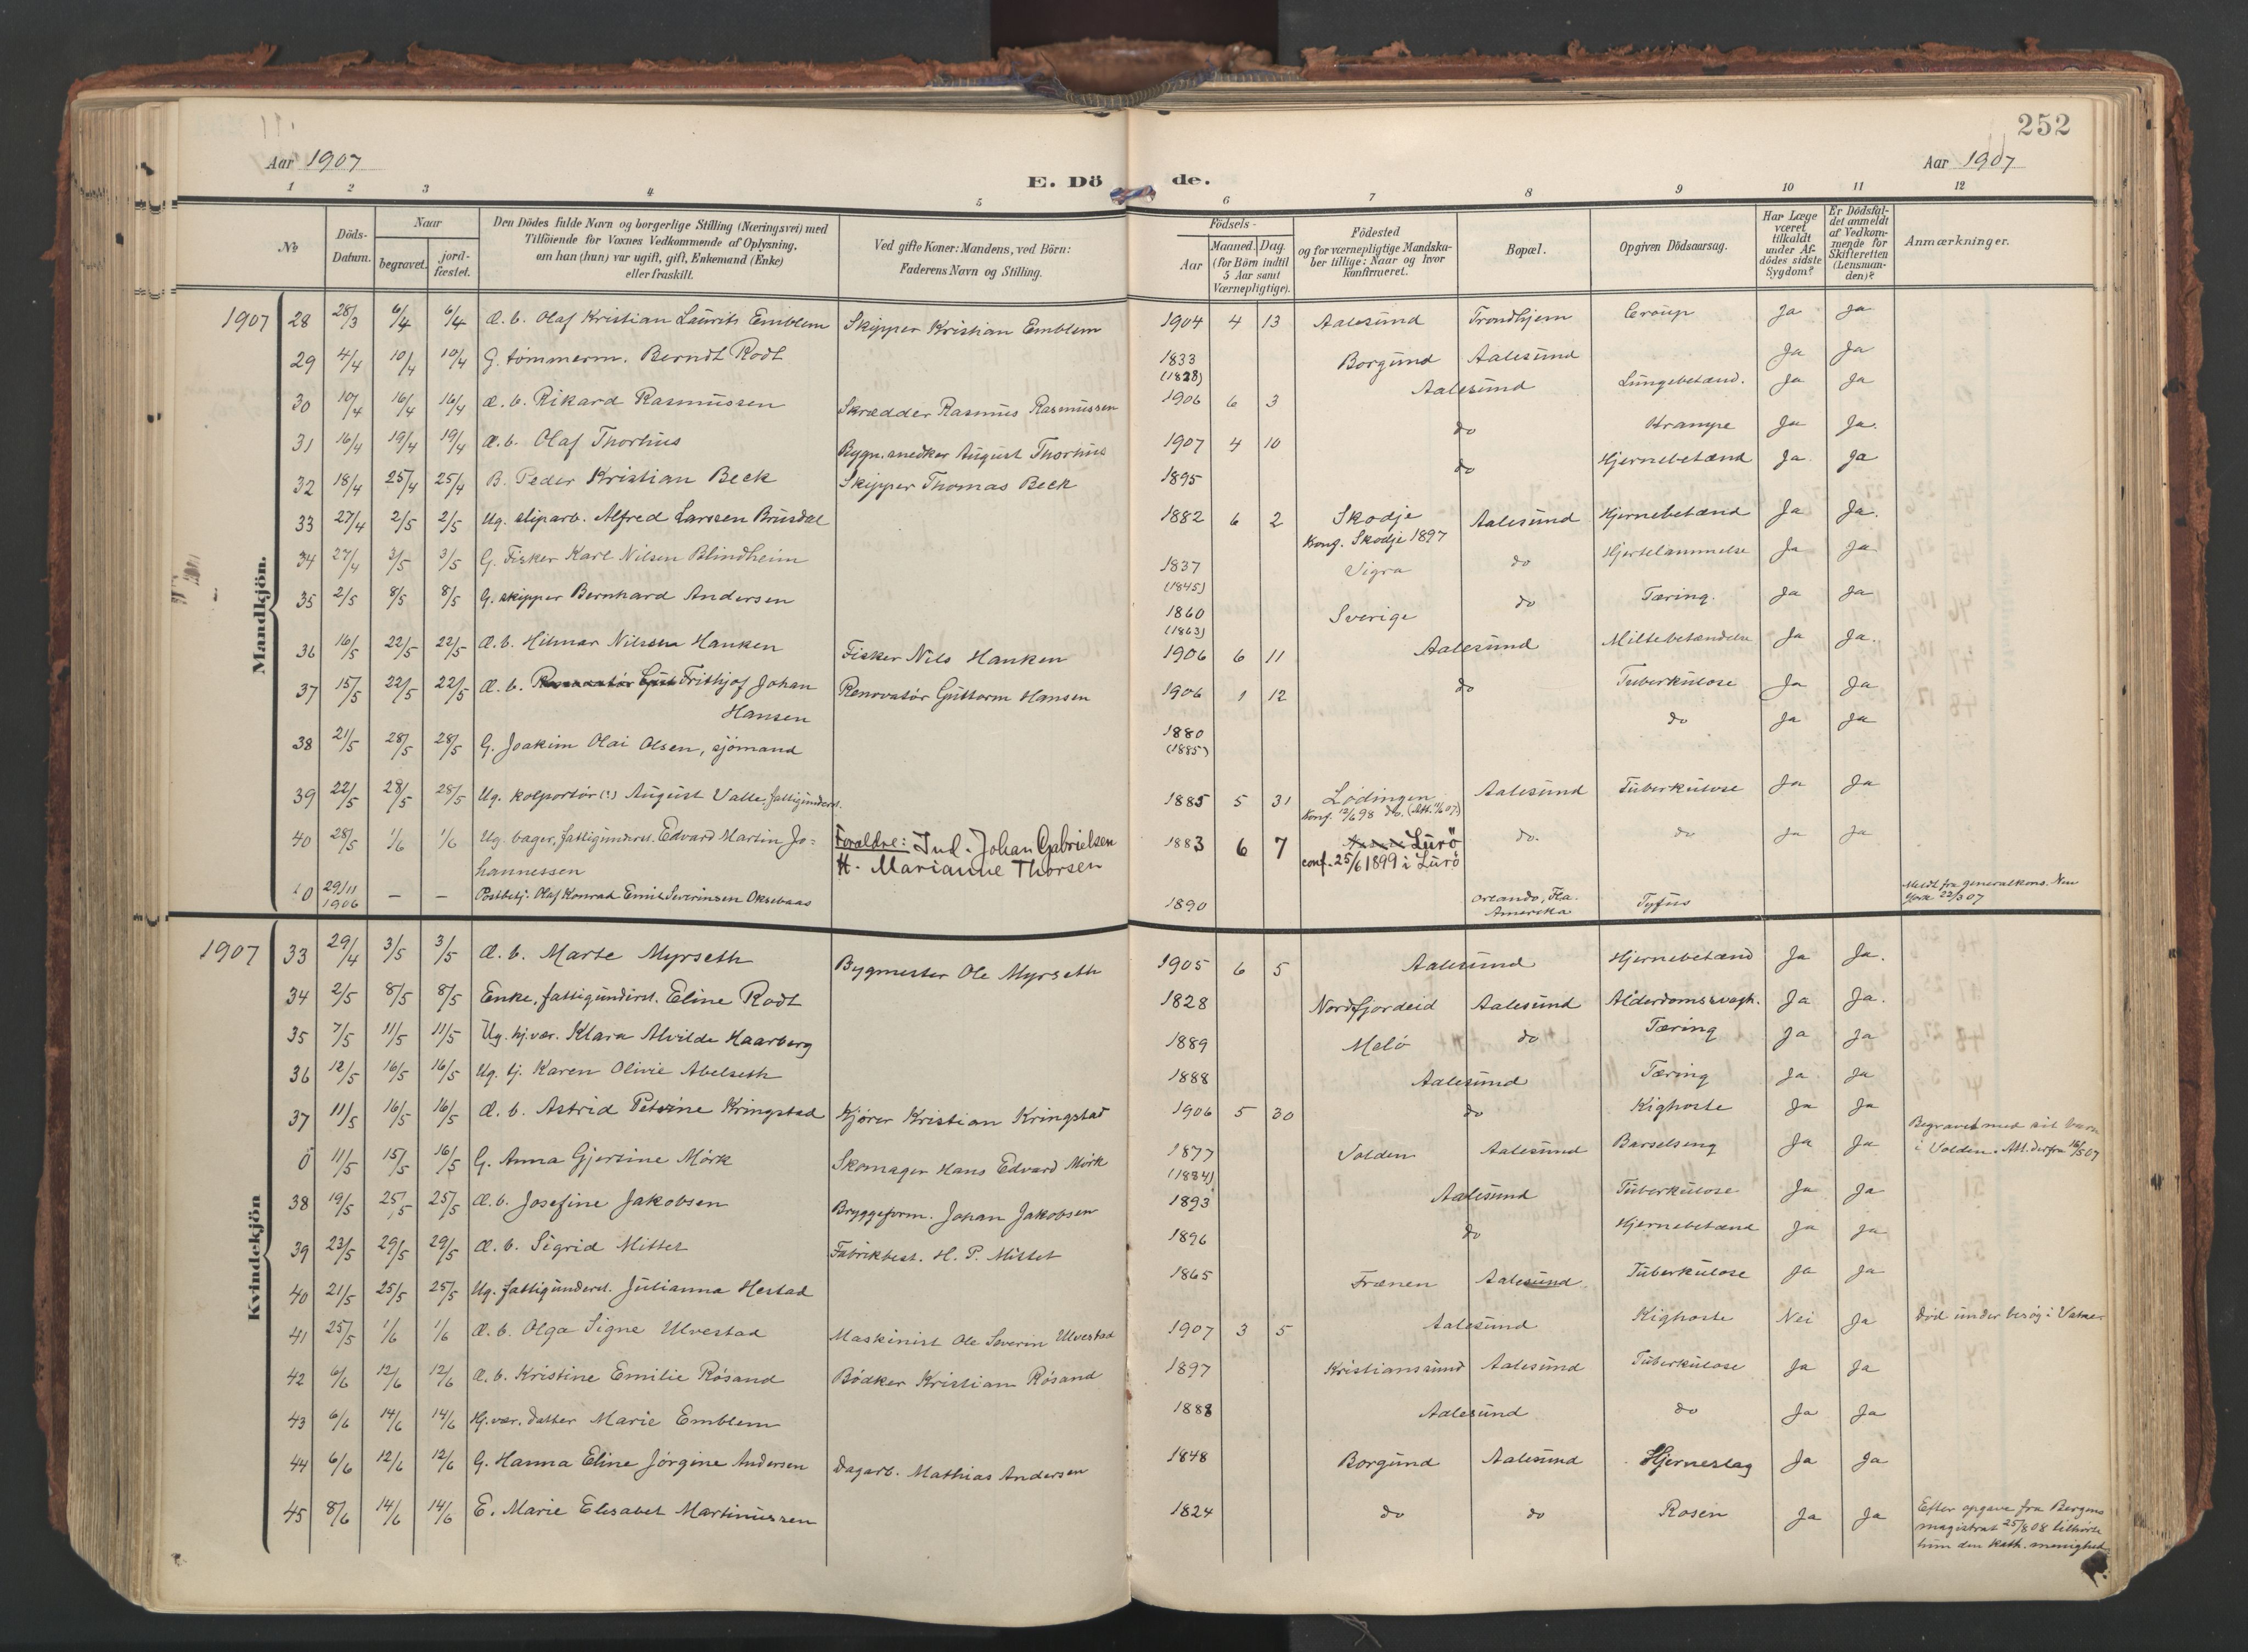 252
Aar 1907
E. Dö de.
Aar 1907
1 2 3 4 5 6 7 8 9 10 11 12
№ Döds-Datum. Naar begravet. jordfæstet. Den Dödes fulde Navn og borgerlige Stilling (Næringsvei) med Tilföiende for Voxnes Vedkommende af Oplysning, om han (hun) var ugift, gift, Enkemand (Enke) eller fraskilt. Ved gifte Koner: Mandens, ved Börn: Faderens Navn og Stilling. Födsels- Aar Maaned. Dag. (for Börn indtil 5 Aar samt Værnepligtige). Födested og for værnepligtige Mandskaber tillige: Naar og hvor konfirmeret. Bopæl. Opgiven Dödsaarsag. Har Læge været tilkaldt under Afdödes sidste Sygdom? Er Dödsfaldet anmeldt af Vedkommende for Skifteretten (Lensmanden)? Anmærkninger.
Mandkjön.
1907 28 28/3 6/4 6/4 Æ. b. Olaf Kristian Laurits Emblem Skipper Kristian Emblem 1904 4 13 Aalesund Trondhjem Croup Ja Ja
29 4/4 10/4 10/4 G. tømmerm. Berndt Rodt 1833 (1828) Borgund Aalesund Ja Ja
30 10/4 16/4 16/4 Æ. b. Rikard Rasmussen Skrædder Rasmus Rasmussen 1906 6 3 Aalesund Lungebetænd. Ja Ja
31 16/4 19/4 19/4 Æ. b. Olaf Thorhus Bygn.snedker August Thorhus 1907 4 10 do Krampe Ja Ja.
32 18/4 25/4 25/4 B. Peder Kristian Beck Skipper Thomas Beck 1895 do Hjernebetænd Ja Ja
33 27/4 2/5 2/5 Ug. sliparb. Alfred Larssen Brusdal 1882 6 2 Skodje Konf. Skodje 1897 Aalesund Hjernebetænd Ja Ja.
34 27/4 3/5 3/5 G. Fisker Karl Nilsen Blindheim 1837 (1845) Vigra do Hjertelammelse Ja Ja
35 2/5 8/5 8/5 G. skipper Bernhard Andersen 1860 (1863) Sverige do Tæring. Ja Ja
36 16/5 22/5 22/5 Æ. b. Hilmar Nilsen Hanken Fisker Nils Hanken 1906 6 11 Aalesund Miltebetændelse Ja Ja.
37 15/5 22/5 22/5 Æ. b. Frithjof Johan Hansen Renovatør Guttorm Hansen 1906 1 12 do Tuberkulose Ja Ja
38 21/5 28/5 28/5 G. Joakim Olai Olsen, sjømand 1880 (1885) do Ja Ja
39 22/5 28/5 28/5 Ug. kolportør (?) August Valle, fattigunderst. 1885 5 31 Lødingen Konf. 12/6 98 Aalesund Tuberkulose Ja Ja
40 28/5 1/6 1/6 Ug. bager, fattigunderst. Edvard Martin Johannessen Forældre: Ind. Johan Gabrielsen H. Marianne Thorsen 1883 6 7 Lurö conf. 25/6 1899 i Lurö do. do Ja Ja
0 29/11 1906 – – Postbetj. Olaf Konrad Emil Severinsen Oksebaas 1890 Orlando, Fla. Amerika Tyfus Meldt fra generalkons. New York 22/3 07
Kvindekjön
1907 33 29/4 3/5 3/5 Æ. b. Marte Myrseth Bygmester Ole Myrseth 1905 6 5 Aalesund Hjernebetænd Ja Ja.
34 2/5 8/5 8/5 Enke, fattigunderst. Eline Rodt 1828 Nordfjordeid Aalesund Alderdomssvagh. Ja Ja.
35 7/5 11/5 11/5 Ug. hj.vær. Klara Alvilde Haarberg 1889 Melö do Tæring Ja Ja
36 12/5 16/5 16/5 Ug. tj. Karen Olivie Abelseth 1888 Aalesund Tæring Ja Ja
37 11/5 16/5 16/5 Æ. b. Astrid Petrine Kringstad Kjører Kristian Kringstad 1906 5 30 do Kighoste Ja Ja
0 11/5 15/5 16/5 G. Anna Gjertine Mörk Skomager Hans Edvard Mörk 1877 (1884) Volden Aalesund Barselseng Ja Ja Begravet med sit barn i Volden. Att. derfra 16/5 07
38 19/5 25/5 25/5 Æ. b. Josefine Jakobsen Bryggeform. Johan Jakobsen 1893 Aalesund Tuberkulose Ja Ja
39 23/5 29/5 29/5 Æ. b. Sigrid Mittet Fabrikbest. H. P. Mittet 1896 do Hjernebetænd Ja Ja
40 21/5 25/5 25/5 Ug. fattigunderst. Julianna Hestad 1865 Frænen Aalesund Tuberkulose Ja Ja
41 25/5 1/6 1/6 Æ. b. Olga Signe Ulvestad Maskinist Ole Severin Ulvestad 1907 3 5 Aalesund Kighoste Nei Ja Død under besøg i Vatne.
42 6/6 12/6 12/6 Æ. b. Kristine Emilie Røsand Bødker Kristian Røsand 1897 Kristianssund Aalesund Tuberkulose Ja Ja
43 6/6 14/6 14/6 Hj.vær. datter Marie Emblem 1888 Aalesund do Ja Ja
44 6/6 12/6 12/6 G. Hanna Eline Jørgine Andersen Dagarb. Mathias Andersen 1848 Borgund Aalesund Hjerneslag Ja Ja
45 8/6 14/6 14/6 E. Marie Elisabet Martinussen 1824 do do Rosen Ja Ja Efter opgave fra Bergens magistrat 25/8 08 tilhørte hun den kath. menighed